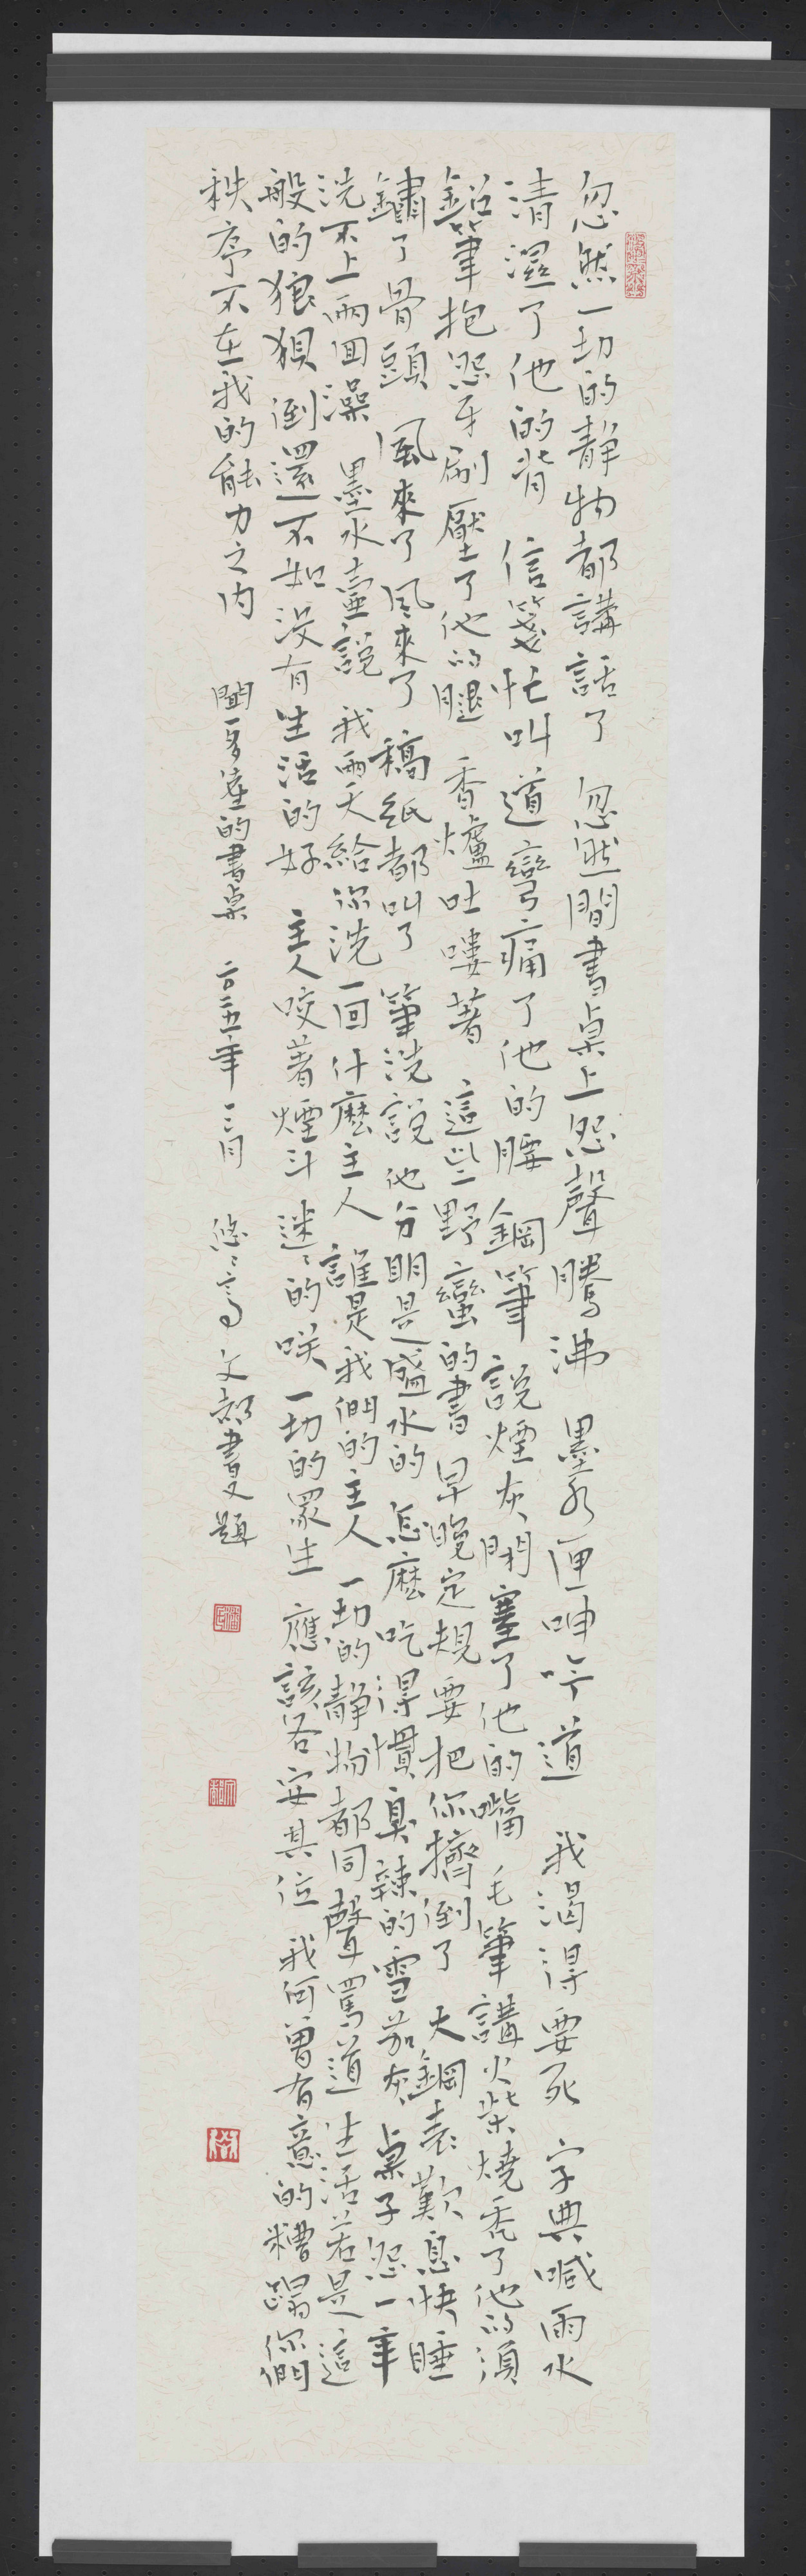 忽然一切的靜物都講話了 忽然間書桌上怨聲騰沸 墨水匣呻吟道 我渴得要死 字典喊雨水
清濕了他的背 信箋忙叫道彎痛了他的腰 鋼筆說煙灰閉塞了他的嘴 毛筆講火柴燒禿了他的須
鉛筆抱怨牙刷壓了他的腿 香爐吐嘍著 這些野蠻的書 早晚定規要把你擠倒了 大鋼表歎息快睡
鏽了骨頭 風來了風來了 稿紙都叫了 筆洗說他分明是盛水的 怎麼吃得慣臭辣的雪茄灰 桌子怨一年
洗不上兩回澡 墨水壺說 我兩天給你洗一回 什麼主人 誰是我們的主人 一切的靜物都同聲罵道 生活若是這
般的狼狽 倒還不如沒有生活的好 主人咬著煙斗 迷迷的咲 一切的眾生 應該各安其位 我何曾有意的糟蹋你們
秩序不在我的能力之內 聞一多 的書桌 文都書又題